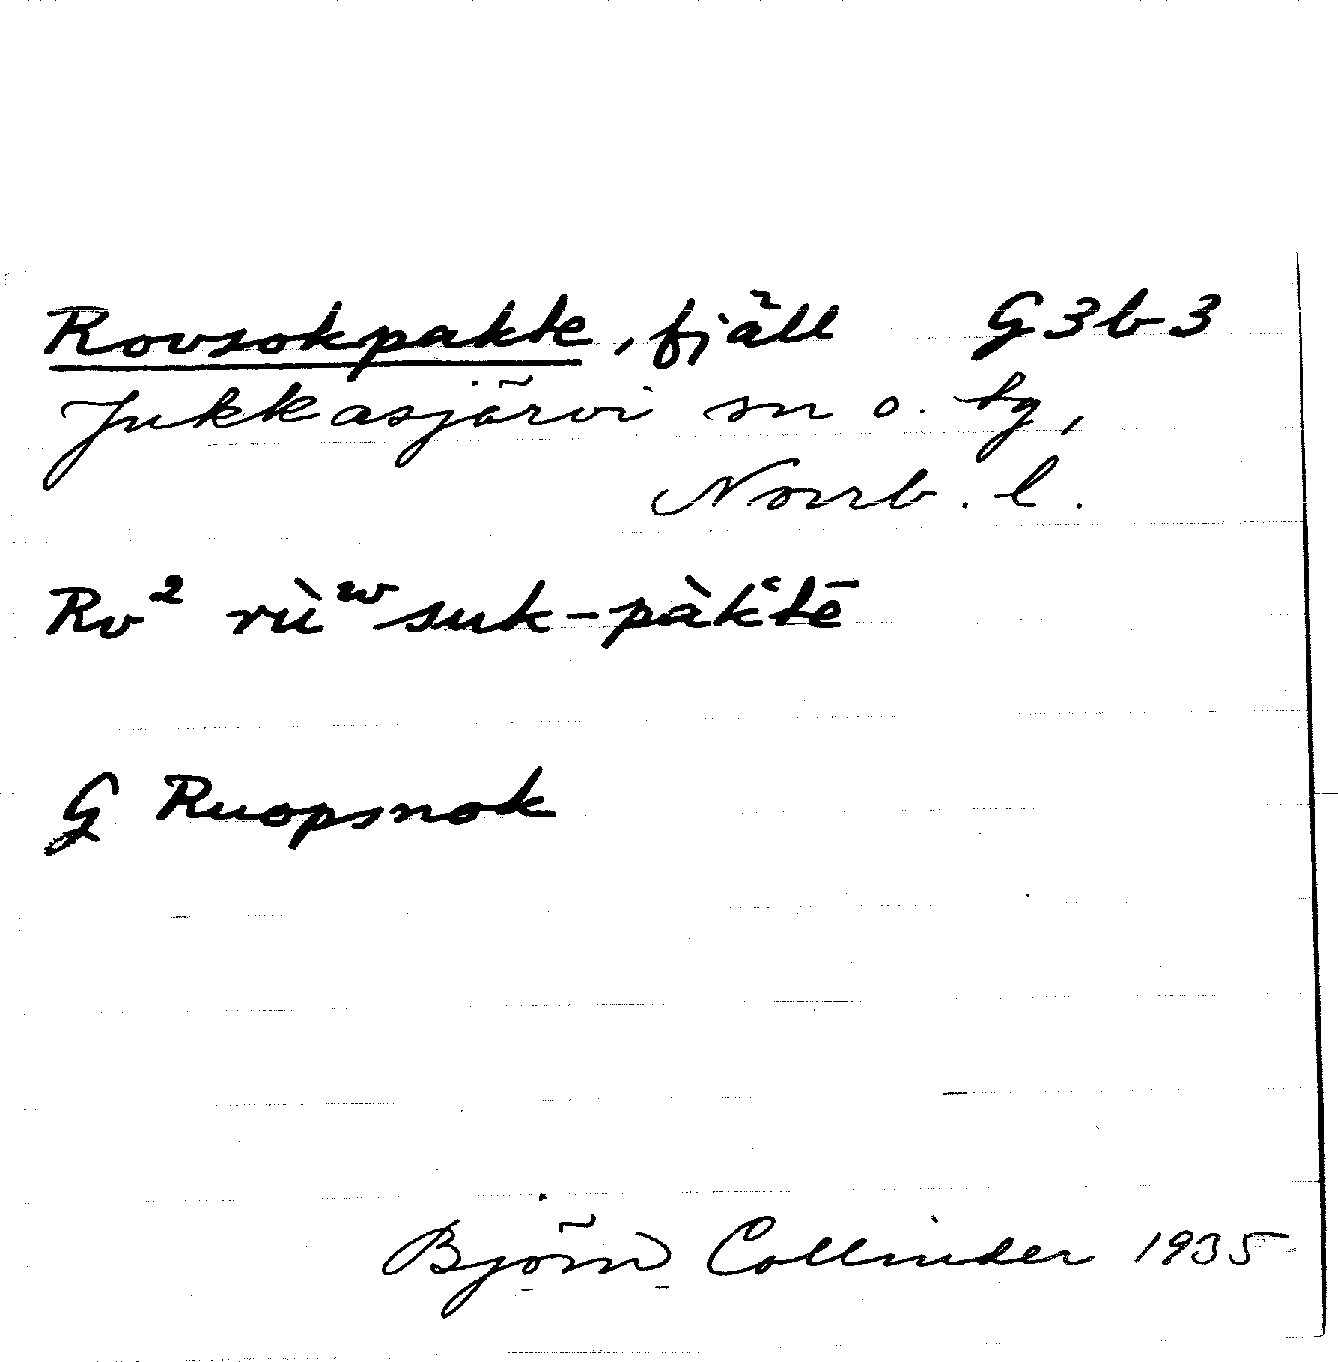 Rovsokpakte, fjäll G3b3
Jukkasjärvi sn o. tg,
Norrb. l.
Rv² rùʷsuk-pàkʿtē
G Ruopsnok
Björn Collinder 1935